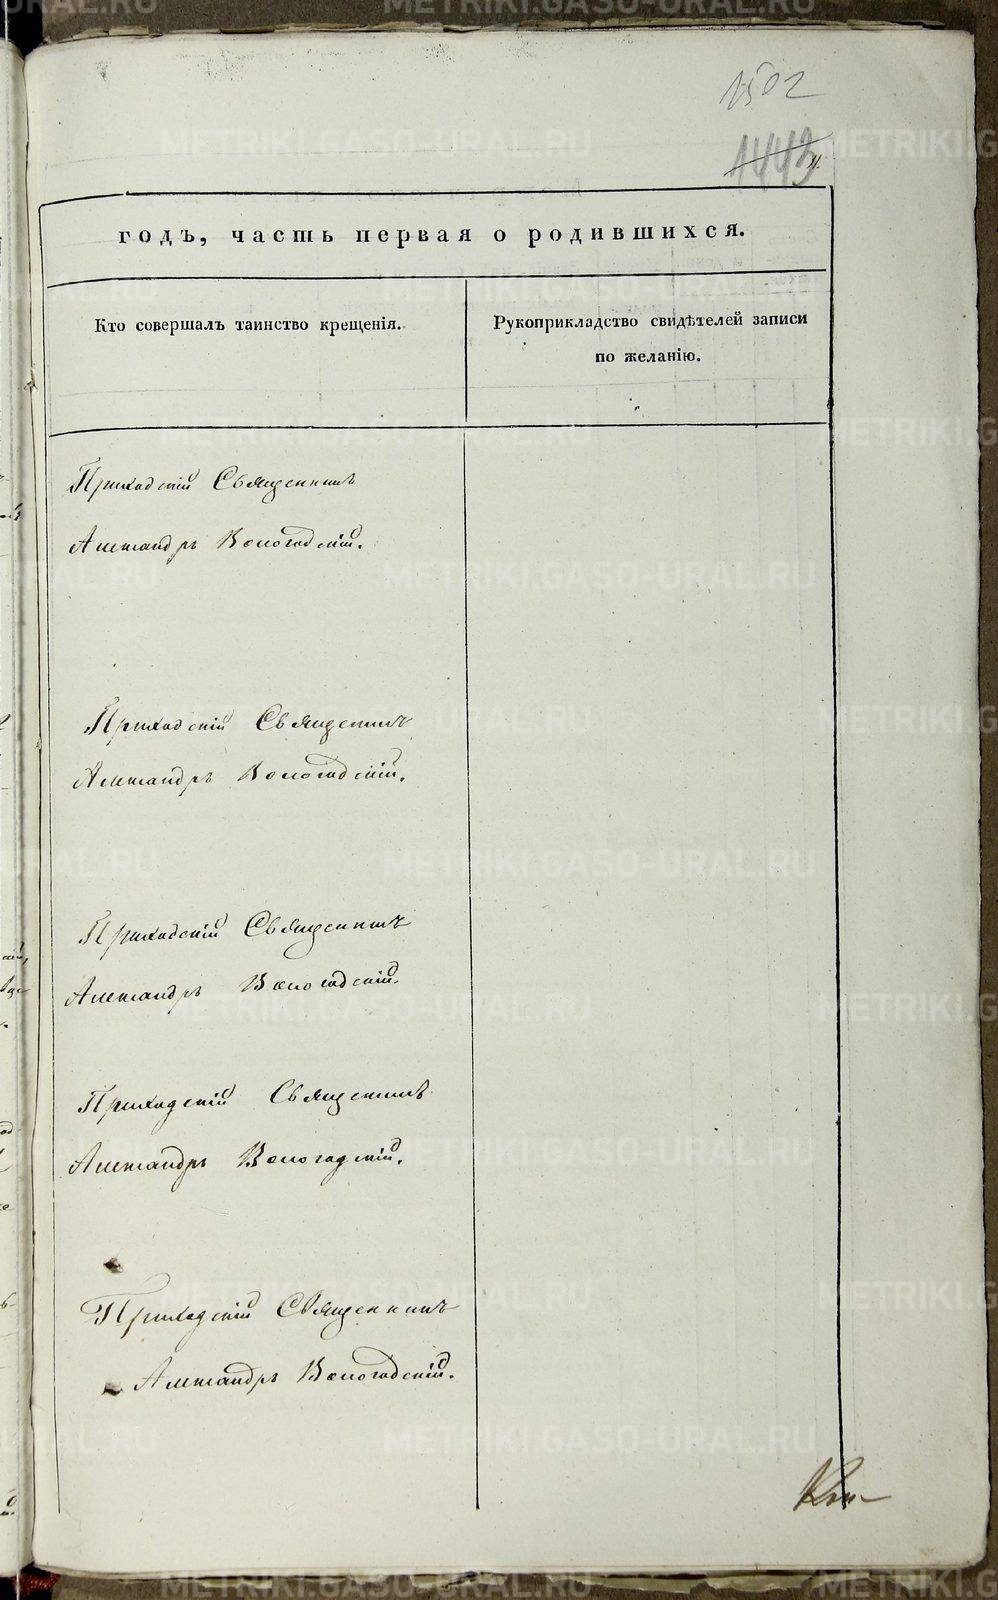 1502
1443
годъ, часть первая о родившихся.
Кто совершалъ таинство крещенія.
Рукоприкладство свидѣтелей записи
по желанію.
Приходскій Священникъ
Александръ Вологодскій.
Приходскій Священникъ
Александръ Вологодскій.
Приходскій Священникъ
Александръ Вологодскій.
Приходскій Священникъ
Александръ Вологодскій.
Приходскій Священникъ
Александръ Вологодскій.
METRIKI.GASO-URAL.RU